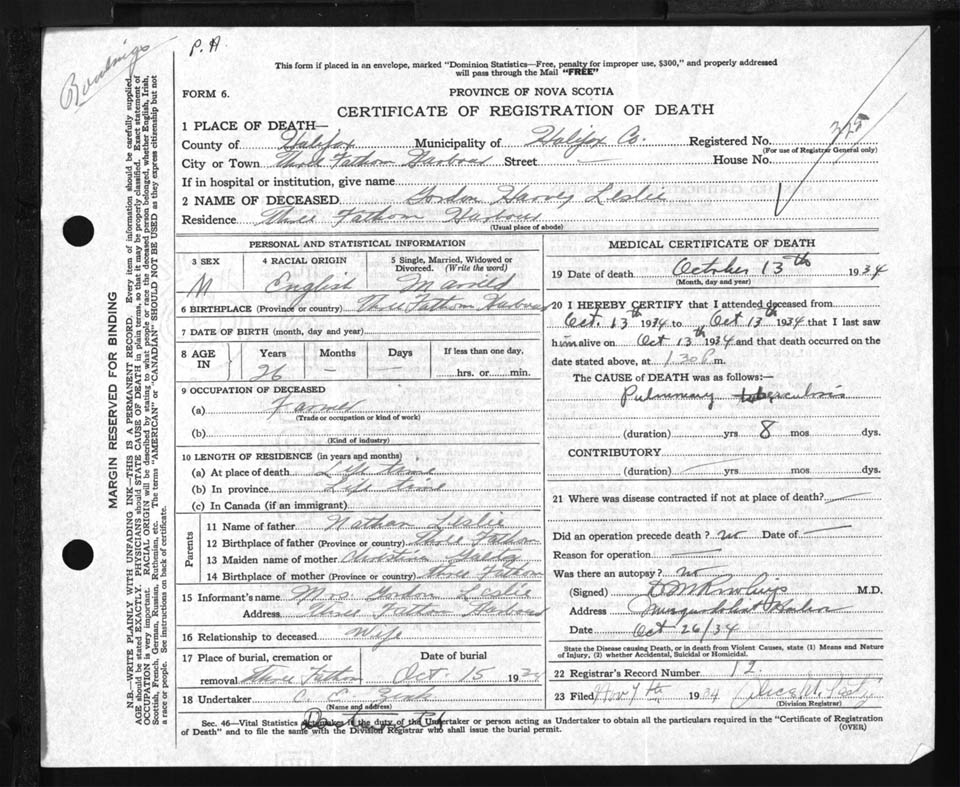 P. A.
This form if placed in an envelope, marked "Dominion Statistics—Free, penalty for improper use, $300," and properly addressed
will pass through the Mail "FREE"
FORM 6.
PROVINCE OF NOVA SCOTIA
CERTIFICATE OF REGISTRATION OF DEATH
1 PLACE OF DEATH—
County of Halifax Municipality of Halifax Co. Registered No.
(For use of Registrar General only)
City or Town Three Fathom Harbour Street — House No.
If in hospital or institution, give name
2 NAME OF DECEASED Gordon Harvey Leslie
Residence Three Fathom Harbour
(Usual place of abode)
PERSONAL AND STATISTICAL INFORMATION
3 SEX M
4 RACIAL ORIGIN English
5 Single, Married, Widowed or
Divorced. (Write the word)
Married
6 BIRTHPLACE (Province or country) Three Fathom Harbour
7 DATE OF BIRTH (month, day and year)
8 AGE IN Years 26 Months — Days — If less than one day,
hrs. or min.
9 OCCUPATION OF DECEASED
(a) Farmer
(Trade or occupation or kind of work)
(b)
(Kind of industry)
10 LENGTH OF RESIDENCE (in years and months)
(a) At place of death Life time
(b) In province Life time
(c) In Canada (if an immigrant)
Parents
11 Name of father Nathan Leslie
12 Birthplace of father (Province or country) Three Fathom
13 Maiden name of mother Christina Gaetz
14 Birthplace of mother (Province or country) Three Fathom
15 Informant's name Mrs Gordon Leslie
Address Three Fathom Harbour
16 Relationship to deceased Wife
17 Place of burial, cremation or Date of burial
removal Three Fathom Oct 15 1934
18 Undertaker C. E. Zink
(Name and address)
MEDICAL CERTIFICATE OF DEATH
19 Date of death October 13th 1934
(Month, day and year)
20 I HEREBY CERTIFY that I attended deceased from
Oct. 13th 1934 to Oct 13th 1934 that I last saw
him alive on Oct 13th 1934 and that death occurred on the
date stated above, at 1.30 P.m.
The CAUSE of DEATH was as follows:—
Pulmonary tuberculosis
(duration) yrs 8 mos dys.
CONTRIBUTORY
(duration) yrs mos dys.
21 Where was disease contracted if not at place of death? —
Did an operation precede death? no Date of —
Reason for operation —
Was there an autopsy? no
(Signed) M.D.
Address Musquodoboit Harbor
Date Oct 26/34
State the Disease causing Death, or in death from Violent Causes, state (1) Means and Nature
of Injury, (2) whether Accidental, Suicidal or Homicidal.
22 Registrar's Record Number 12.
23 Filed Nov 7th 1934
(Division Registrar)
Sec. 46—Vital Statistics Act—It is the duty of the Undertaker or person acting as Undertaker to obtain all the particulars required in the "Certificate of Registration
of Death" and to file the same with the Division Registrar who shall issue the burial permit.
(OVER)
MARGIN RESERVED FOR BINDING
N.B.—WRITE PLAINLY, WITH UNFADING INK—THIS IS A PERMANENT RECORD. Every item of information should be carefully supplied.
AGE should be stated EXACTLY. PHYSICIANS should STATE CAUSE OF DEATH in plain terms, so that it may be properly classified. Exact statement of
OCCUPATION is very important. RACIAL ORIGIN will be described by stating to what people or race the deceased person belonged, whether English, Irish,
Scottish, French, German, Russian, Ruthenian, etc. The terms "AMERICAN" or "CANADIAN" SHOULD NOT BE USED as they express citizenship but not
a race or people. See instructions on back of certificate.